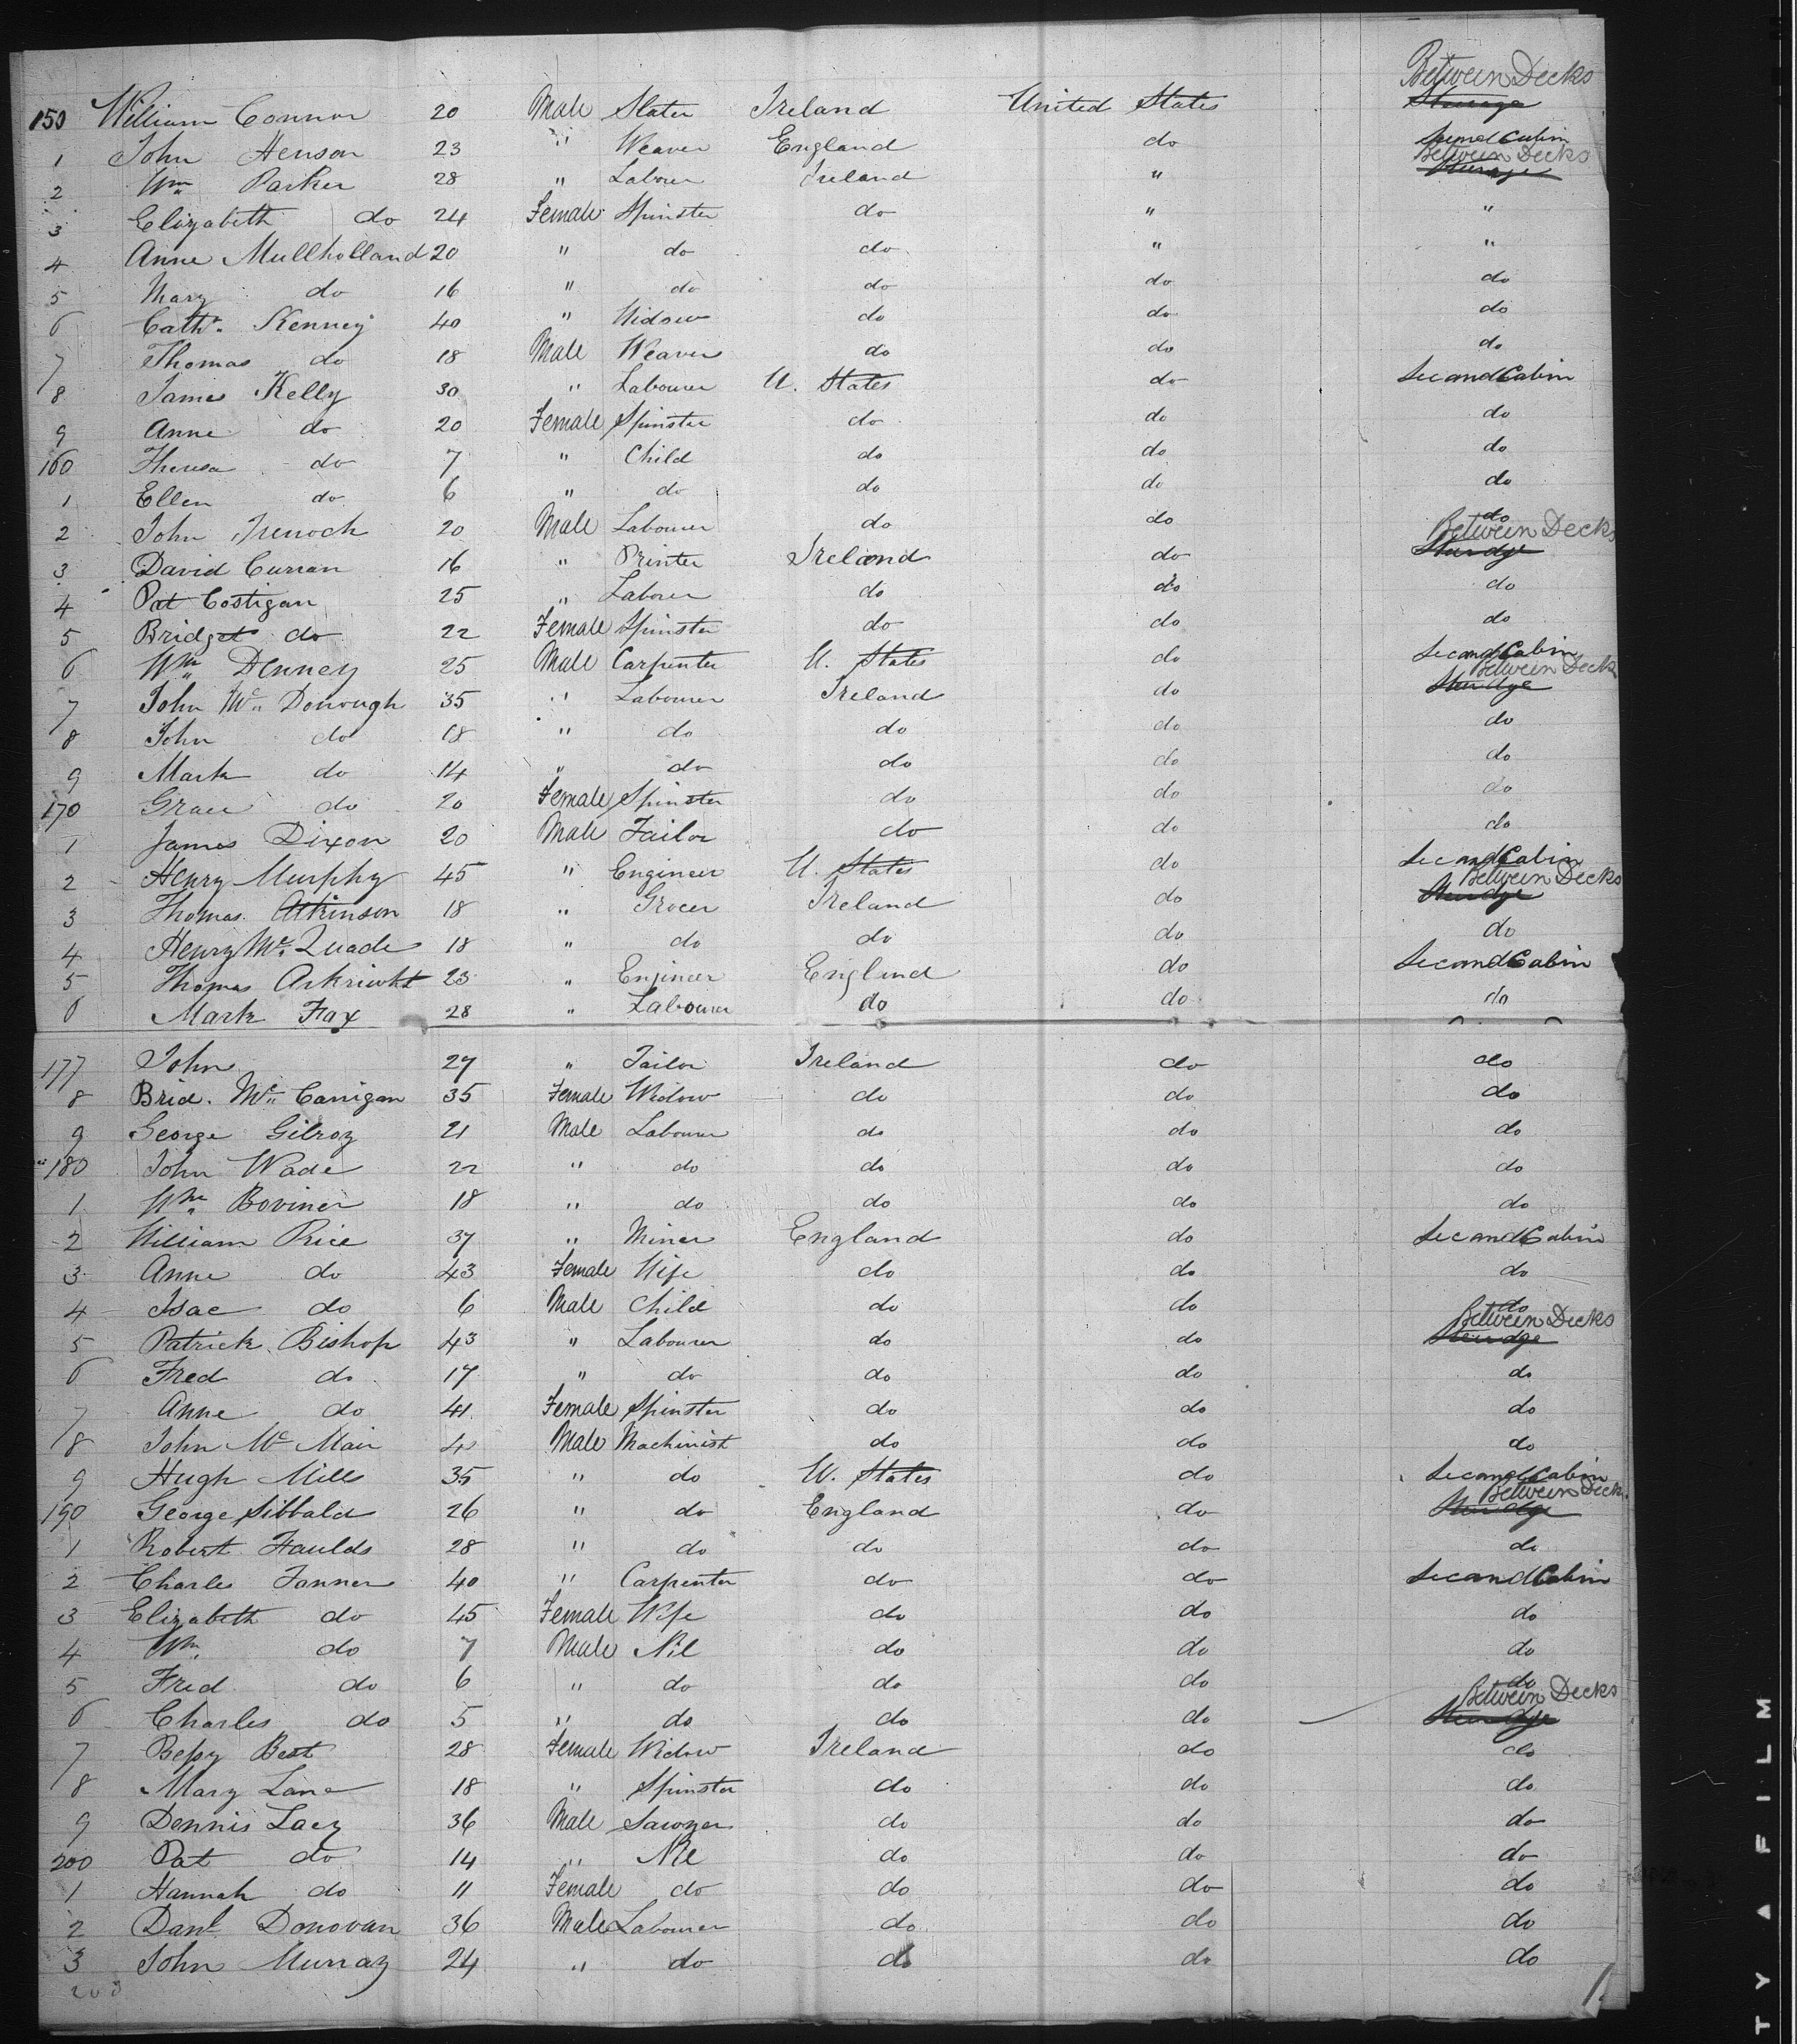 Between Decks
150 William Connor 20 Male Slater Ireland United States Steerage
1 John Henson 23 " Weaver England do Second Cabin
Between Decks
2 Wm Parker 28 " Labourer Ireland " Steerage
3 Elizabeth do 24 Female Spinster do " "
4 Anne Mullholland 20 " do do " "
5 Mary do 16 " do do do do
6 Cathe. Kenney 40 " Widow do do do
7 Thomas do 18 Male Weaver do do do
8 James Kelly 30 " Labourer U. States do Second Cabin
9 Anne do 20 Female Spinster do do do
160 Theresa do 7 " Child do do do
1 Ellen do 6 " do do do do
2 John 20 Male Labourer do do do
Between Decks
3 David Curran 16 " Printer Ireland do Steerage
4 Pat Costigan 25 " Labourer do do do
5 Bridget do 22 Female Spinster do do do
6 Wm Denney 25 Male Carpenter U. States do Second Cabin
Between Deck
7 John Mc Donough 35 " Labourer Ireland do Steerage
8 John do 18 " do do do do
9 Mark do 14 " do do do do
170 Grace do 20 Female Spinster do do do
1 James Dixon 20 Male Tailor do do do
2 Henry Murphy 45 " Engineer U. States do Second Cabin
Between Decks
3 Thomas Atkinson 18 " Grocer Ireland do Steerage
4 Henry Mc Quade 18 " do do do do
5 Thomas Arkriwht 23 " Engineer England do Second Cabin
6 Mark Fax 28 " Labourer do do do
177 John 27 " Tailor Ireland do do
8 Brid. Mc Carrigan 35 Female Widow do do do
9 George Gilroy 21 Male Labourer do do do
180 John Wade 22 " do do do do
1 Wm Boviner 18 " do do do do
2 William Price 37 " Miner England do Second Cabin
3 Anne do 43 Female Wife do do do
4 Isac do 6 Male Child do do do
Between Decks
5 Patrick Bishop 43 " Labourer do do Steerage
6 Fred do 17 " do do do do
7 Anne do 41 Female Spinster do do do
8 John Mc Mair Male Machinist do do do
9 Hugh Mills 35 " do U. States do Second Cabin
Between Deck
190 George Sibbald 26 " do England do Steerage
1 Robert Faulds 28 " do do do do
2 Charles Fanner 40 " Carpenter do do Second Cabin
3 Elizabeth do 45 Female Wife do do do
4 Wm do 7 Male Nil do do do
5 Fred do 6 " do do do do
Between Decks
6 Charles do 5 " do do do Steerage
7 Bessy Best 28 Female Widow Ireland do do
8 Mary Lane 18 " Spinster do do do
9 Dennis Lacy 36 Male Sawyer do do do
200 Pat do 14 " Nil do do do
1 Hannah do 11 Female do do do do
2 Danl Donovan 36 Male Labourer do do do
3 John Murray 24 " do do do do
203
TY ▲ FILM